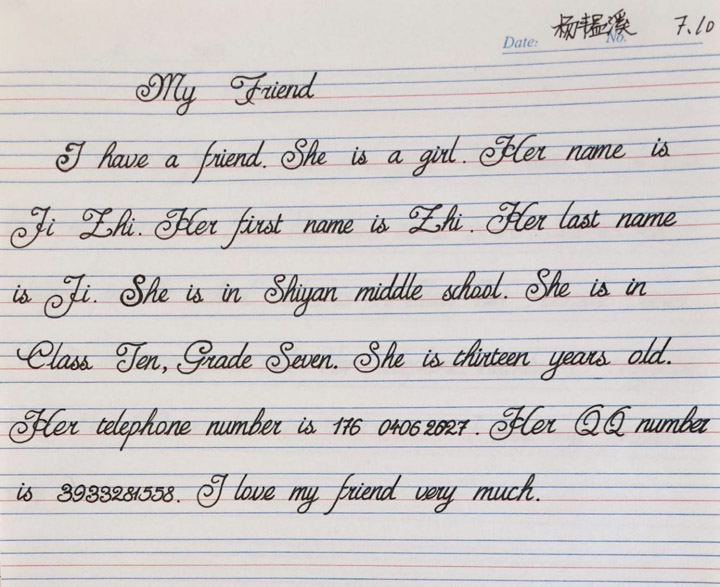 Date: 杨韫溪 No. 7.10
My Friend
I have a friend. She is a girl. Her name is
Ji Zhi. Her first name is Zhi. Her last name
is Ji. She is in Shiyan middle school. She is in
Class Ten, Grade Seven. She is thirteen years old.
Her telephone number is 176 0406 2627. Her QQ number
is 3933281558. I love my friend very much.